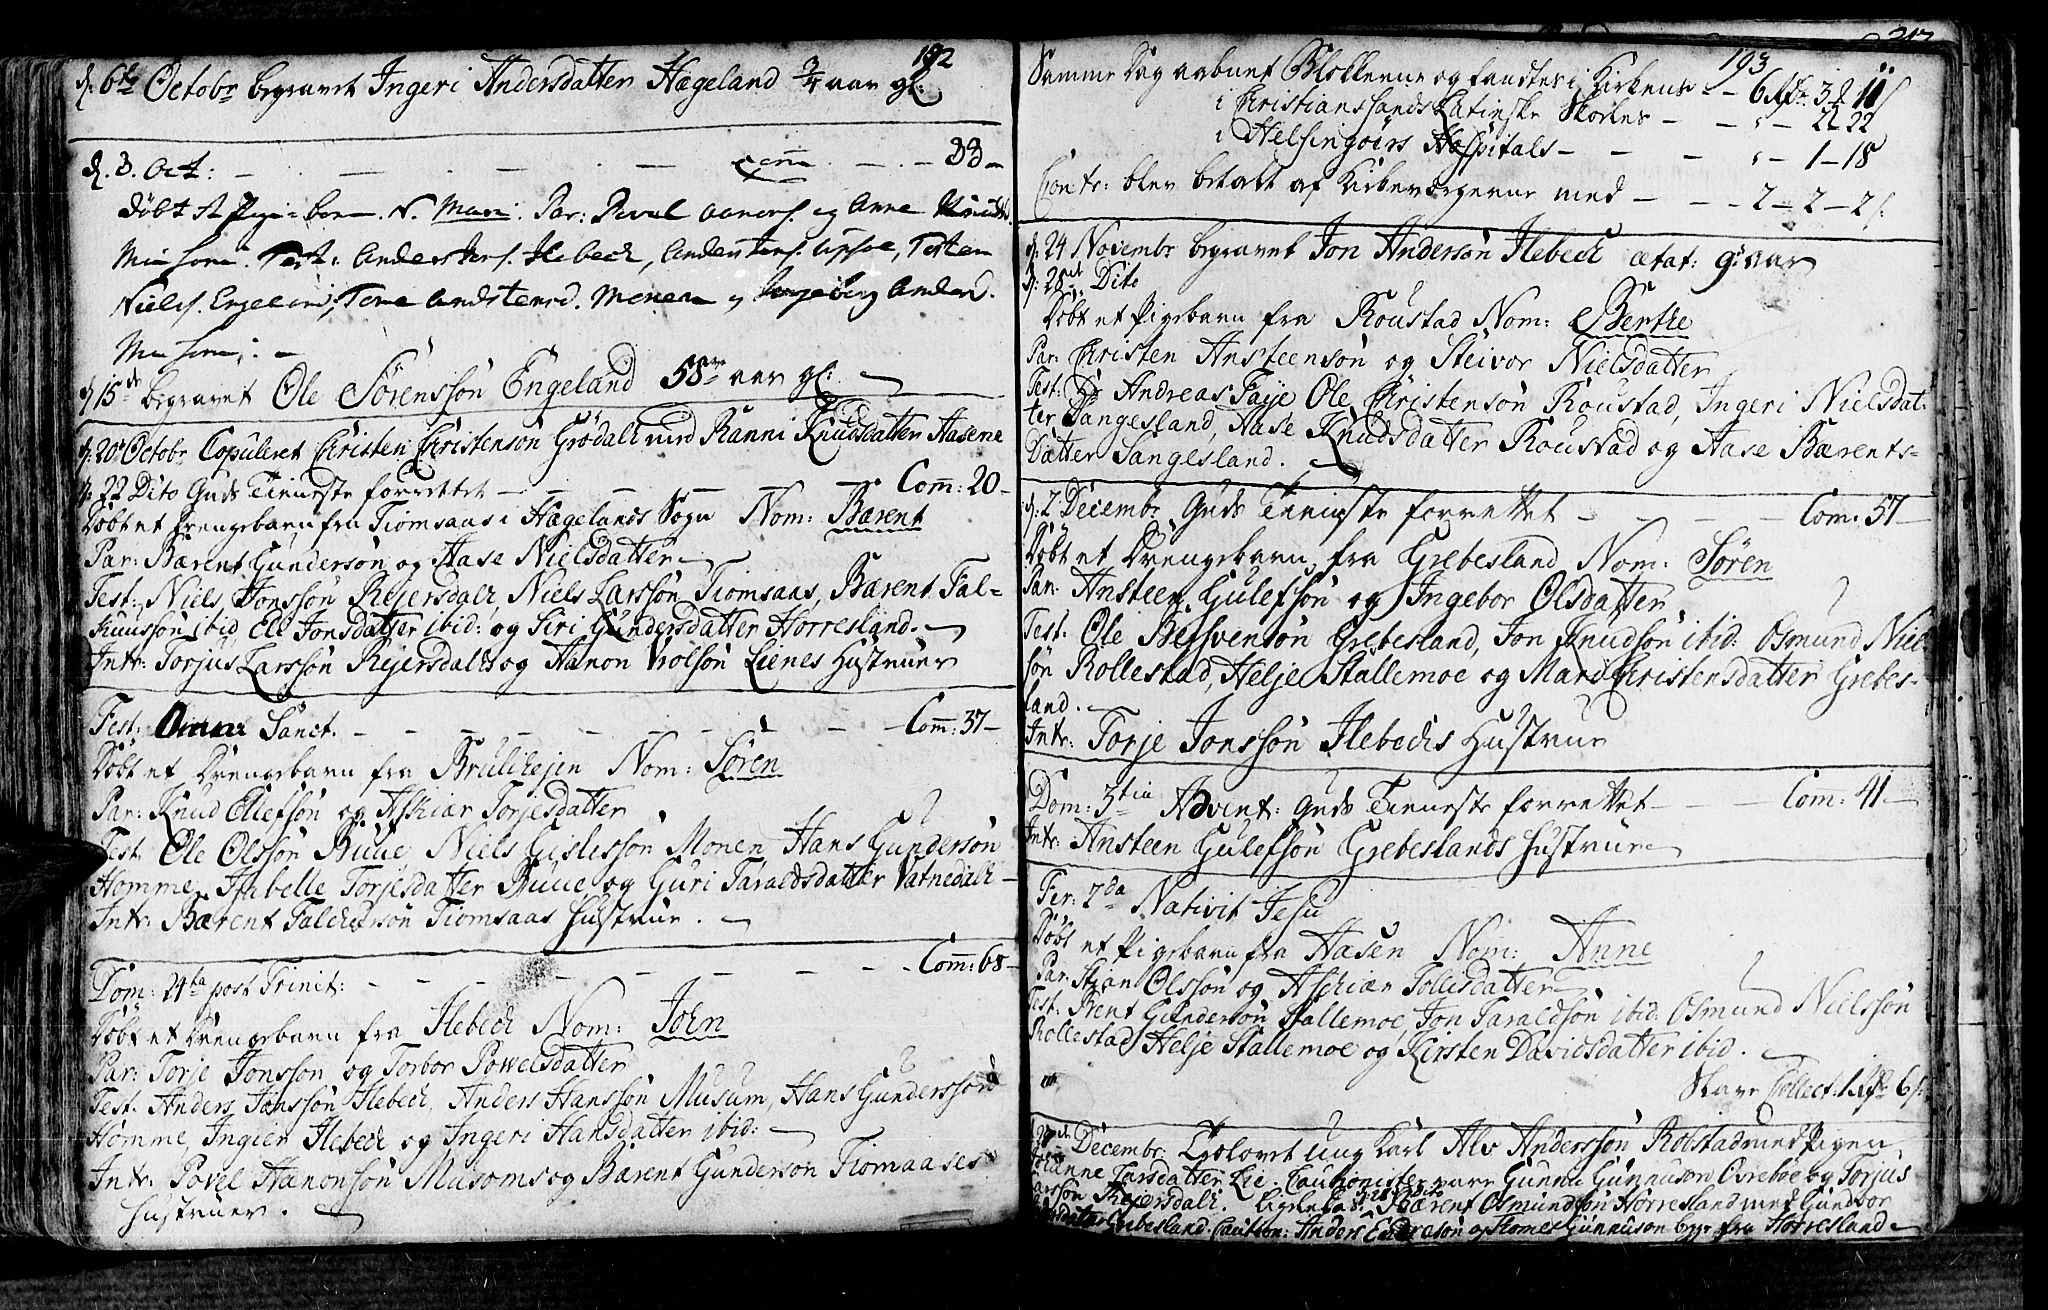 192
d: 6te Octobr begravet Ingeri Andersdatter Hægeland 3/4 aar gl:
d. 8. Oct: — — — — Com — — 33 —
döbt et Pige-barn. N. Mari. Par: Povel Aaners. og Anne Knudsd.
Musom. Test: Anders Jens. Ilebeck, Anders Jens. Uppsae, Testen
Niels. Engeland, Tone Andstensd. Monen og Ingeborg Andersd.
Musom. —
d. 15de begravet Ole Sörenssön Engeland 58 aar gl:
d: 20 Octobr Copuleret Christen Christensön Grödalt med Ranni Knudsdatter Aasene
d: 22 Dito Guds Tieneste forrettet — — — — Com: 20 —
Döbt et drengebarn fra Tiomsaas i Hægelands Sogn Nom: Bærent
Par: Bærent Gundersön og Aase Nielsdatter
Test: Niels Jonssön Reiersdalt, Niels Larssön Tiomsaas, Bærent Fal-
kuussön ibid, Eli Jonsdatter ibid: og Siri Gundersdatter Horresland.
Intr: Torjus Larssön Reiersdals og Hanon Trolsön Lienes Hustruer
Fest: Omn: Sanct. — — — — — Com: 37 —
Döbt et Drengebarn fra Brulihejen Nom: Sören
Par: Knud Eliefsön og Askiær Torjesdatter
Test. Ole Olssön Buue, Niels Gislessön Monen Hans Gundersön
Homme, Isabelle Torjesdatter Buue og Guri Taraldsdatter Vatnedalt —
Intr: Bærent Falchedsön Tiomsaas Hustrue. —
Dom: 24ta post Trinit: — — — — Com: 68 —
Döbt et Drengebarn fra Ilebeck Nom: John
Par: Torje Jonssön og Torbor Powelsdatter
Test. Anders Jonssön Ilebeck, Anders Hanssön Musum, Hans Gunderssön
Homme, Ingier Ilebeck og Ingeri Hansdatter ibid: —
Intr: Povel Hanonsön Musoms og Bærent Gundersön Tiomaases
Hustruer. —
193 217
Samme Dag aabnet Blokkerne og fandtes i Kirkens — 6 Rdr. 3 ₰ 11 s
i Christianssands Latinske Skoeles — — " — 2 — 22
i Helsingörs Hospitals — — — " — 1 — 18
Contr: blev betalt af Kirkeværgerne med — — 2 — 2 — 2 s.
d: 24 Novembr begravet Jon Andersön Ilebeck ætat: 9 aar
d: 28de Dito
Döbt et Pigebarn fra Roustad Nom: Berthe
Par: Christen Ansteensön og Steivor Nielsdatter
Test: Dr Andreas Faye Ole Christensön Roustad, Ingeri Nielsdat-
ter Sangesland, Aase Knudsdatter Roustad og Aase Bærents-
Datter Sangesland.
d: 2 Decembr Guds Tieniste forrettet — — — Com: 57 —
Döbt et Drengebarn fra Grebesland Nom: Sören
Par: Ansteen Gulefsön og Ingebor Olsdatter
Test. Ole Bersvensön Grebesland, Jon Knudsön ibid: Osmund Niel-
sön Rollestad, Helje Stallemoe og Mari Christensdatter Grebes-
land. —
Intr: Torje Jonssön Ilebecks Hustrue
Dom: 3tia Advent: Guds Tieneste forrettet — — Com: 41 —
Intr: Ansteen Gulefsön Grebeslands Hustrue
Fer: 2da Nativit Jesu
Döbt et Pigebarn fra Aasen Nom: Anne
Par: Stian Olssön og Aschiær Tollesdatter
Test. Brent Gundersön Stallemoe, Jon Taraldsön ibid: Osmund Nielssön
Rollestad, Helje Stallemoe og Kirsten Davidsdatter ibid. —
Skare Collect: 1 Rdr 6 s.
d. 28de Decembr. Trolovet ung Karl Alv Anderssön Rolstad med Pigen
Johanne Larsdatter Lie. Cautionister vare Gunnu Gunnuson Övreboe og Torjus
Larssön Reiersdalt. Ligeledes Bærent Osmundsön Horresland med Gundbor
datter Grebesland. Caution: Anders Endresön og Tomes Gunnuson begge fra Horresland —